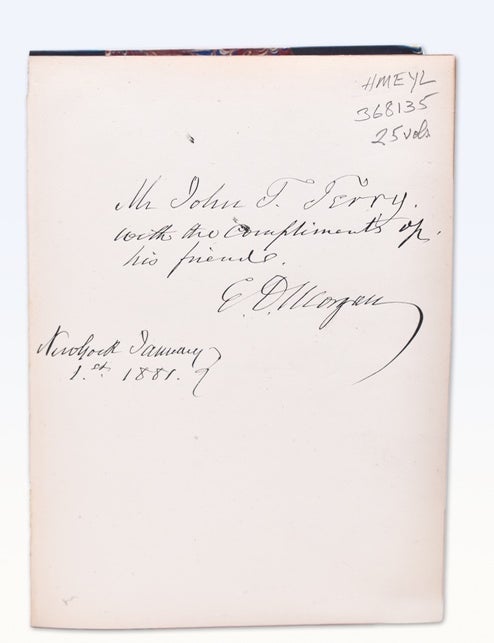 HMEYL
368135
25 vols
Mr John T. Terry.
with the compliments of
his friend.
E. D. Morgan
New York January
1.st 1881.